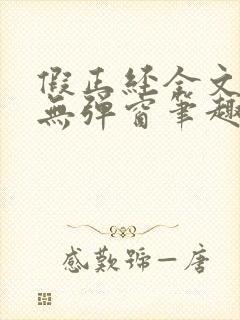 假正經全文
無彈窗筆趣
感歎號—唐